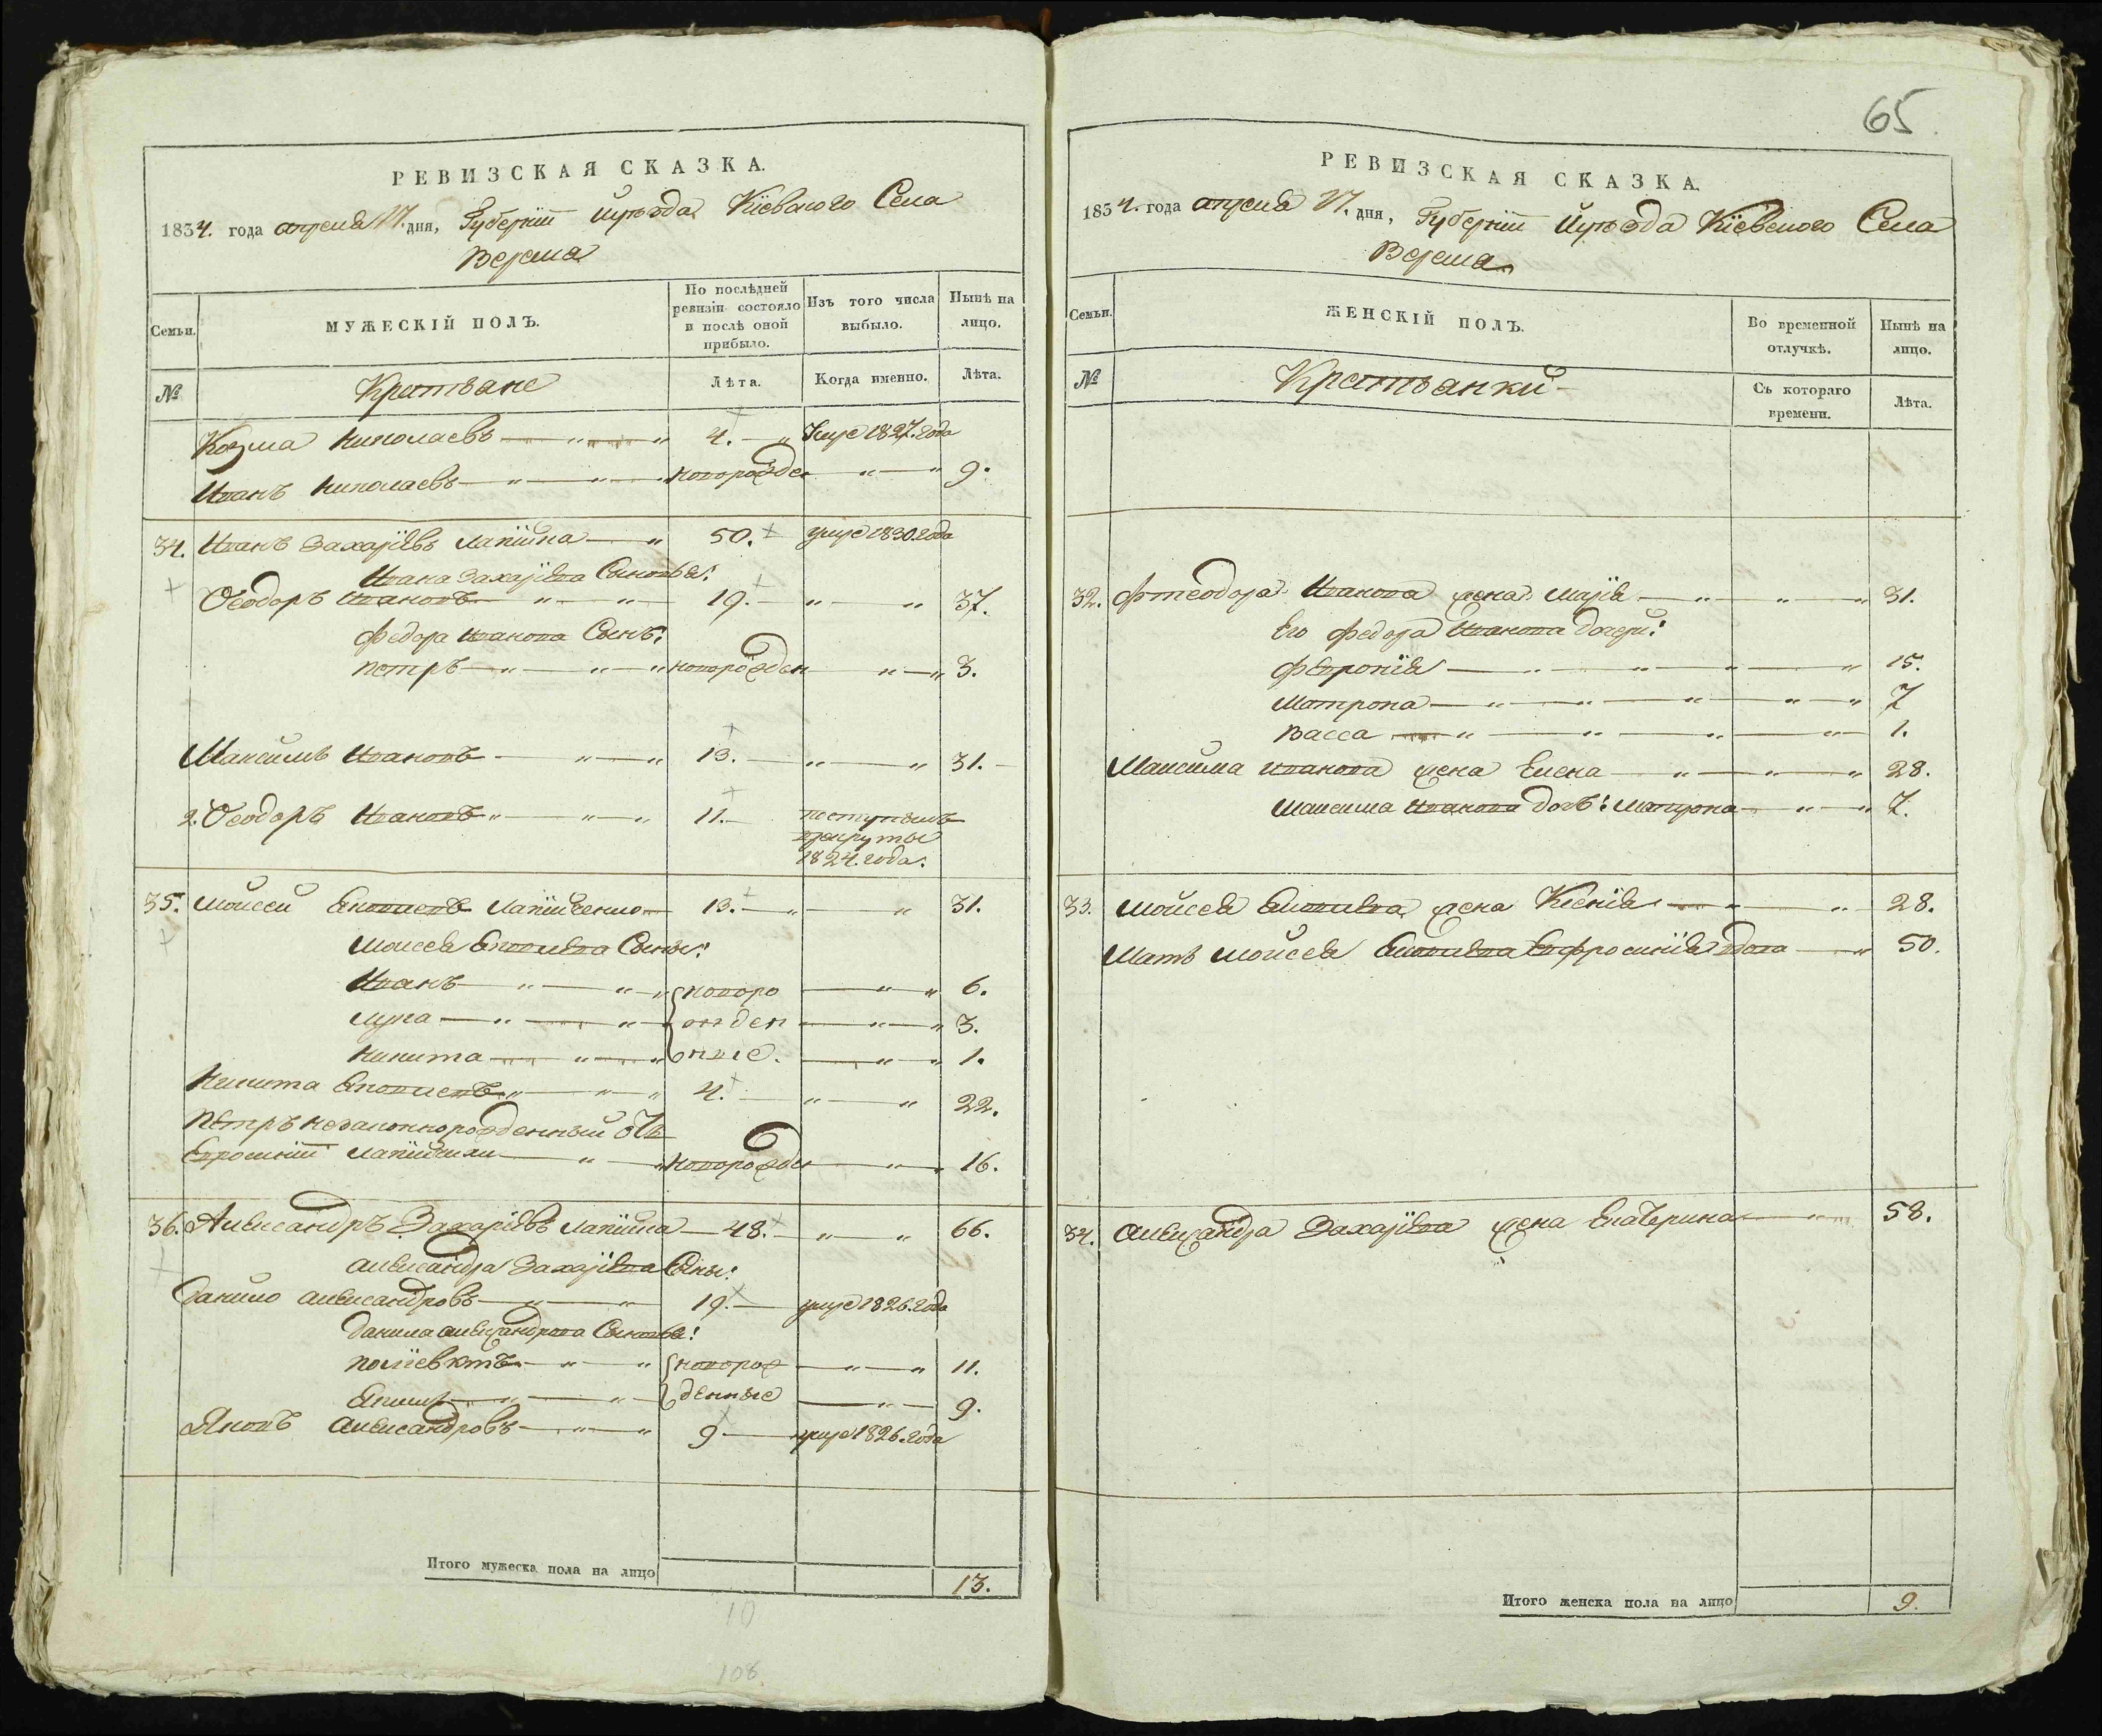 РЕВИЗСКАЯ СКАЗКА.
1834. года апреля дня, Губернiи и уѣзда Кiевского Села
Веремя
Семьи.
МУЖЕСКIЙ ПОЛЪ.
По послѣдней ревизiи состояло и послѣ оной прибыло.
Изъ того числа выбыло.
Нынѣ на лицо.
№
Крестьане
Лѣта.
Когда именно.
Лѣта.
Козма Николаевъ 4. Умре 1827. года
Иванъ Николаевъ новорожден 9.
34. Иванъ Захарiевъ Лапiйка 50. умре 1830. года
Ивана Захарiева Сыновья:
Ѳеодоръ Ивановъ 19. 37.
Федора Иванова Сынъ:
Петръ новорожден 3.
Максимъ Ивановъ 13. 31.
2. Ѳеодоръ Ивановъ 11. поступилъ
врекруты
1824. года.
35. Мойсей Лапiйченко 13. 31.
Моисея Сыны:
Иванъ новоро 6.
Лука жден 3.
Никита ные. 1.
Никита 4. 22.
Петръ незаконнорожденный отъ
новорожде 16.
36. Александръ Захарiевъ Лапiйка 48. 66.
Александра Захарiева Сыны:
Данило Александровъ 19. умре 1826. года
Данила Александрова Сыновья:
Полiевктъ новорож 11.
денные 9.
Яковъ Александровъ 9 умре 1826. года
Итого мужеска пола на лицо 13.
10
108
65
РЕВИЗСКАЯ СКАЗКА.
1834. года апреля дня, Губернiи и уѣзда Кiевского Села
Веремя
Семьи.
ЖЕНСКIЙ ПОЛЪ.
Во временной отлучкѣ.
Нынѣ на лицо.
№
Крестьанки
Съ котораго времени.
Лѣта.
32. Фтеодора Иванова жена Марiя 31.
Его Федора Иванова дочери:
Февронiя 15.
Мотрона 7
Васса 1.
Максима Иванова жена Елена 28.
Максима Иванова дочь: Матрона 7.
33. Мойсея жена Ксенiя 28.
Мать Мойсея Евфросинiя вдова 50.
34. Александра Захарiева жена Екатерина 58.
Итого женска пола на лицо 9.